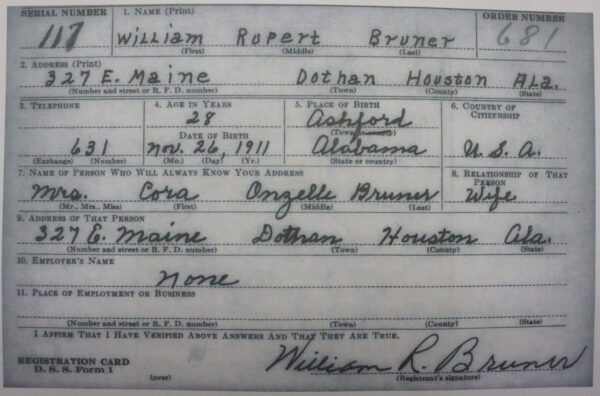 SERIAL NUMBER 1. NAME (Print) ORDER NUMBER
117 William Rupert Bruner 681
(First) (Middle) (Last)
2. ADDRESS (Print)
327 E. Maine Dothan Houston Ala.
(Number and street or R. F. D. number) (Town) (County) (State)
3. TELEPHONE 4. AGE IN YEARS 5. PLACE OF BIRTH 6. COUNTRY OF CITIZENSHIP
28 Ashford
DATE OF BIRTH (Town or county)
631 Nov. 26, 1911 Alabama U. S. A.
(Exchange) (Number) (Mo.) (Day) (Yr.) (State or country)
7. NAME OF PERSON WHO WILL ALWAYS KNOW YOUR ADDRESS 8. RELATIONSHIP OF THAT PERSON
Mrs. Cora Onzelle Bruner Wife
(Mr., Mrs., Miss) (First) (Middle) (Last)
9. ADDRESS OF THAT PERSON
327 E. Maine Dothan Houston Ala.
(Number and street or R. F. D. number) (Town) (County) (State)
10. EMPLOYER'S NAME
None
11. PLACE OF EMPLOYMENT OR BUSINESS
(Number and street or R. F. D. number) (Town) (County) (State)
I AFFIRM THAT I HAVE VERIFIED ABOVE ANSWERS AND THAT THEY ARE TRUE.
REGISTRATION CARD William R. Bruner
D. S. S. Form 1 (over) (Registrant's signature)